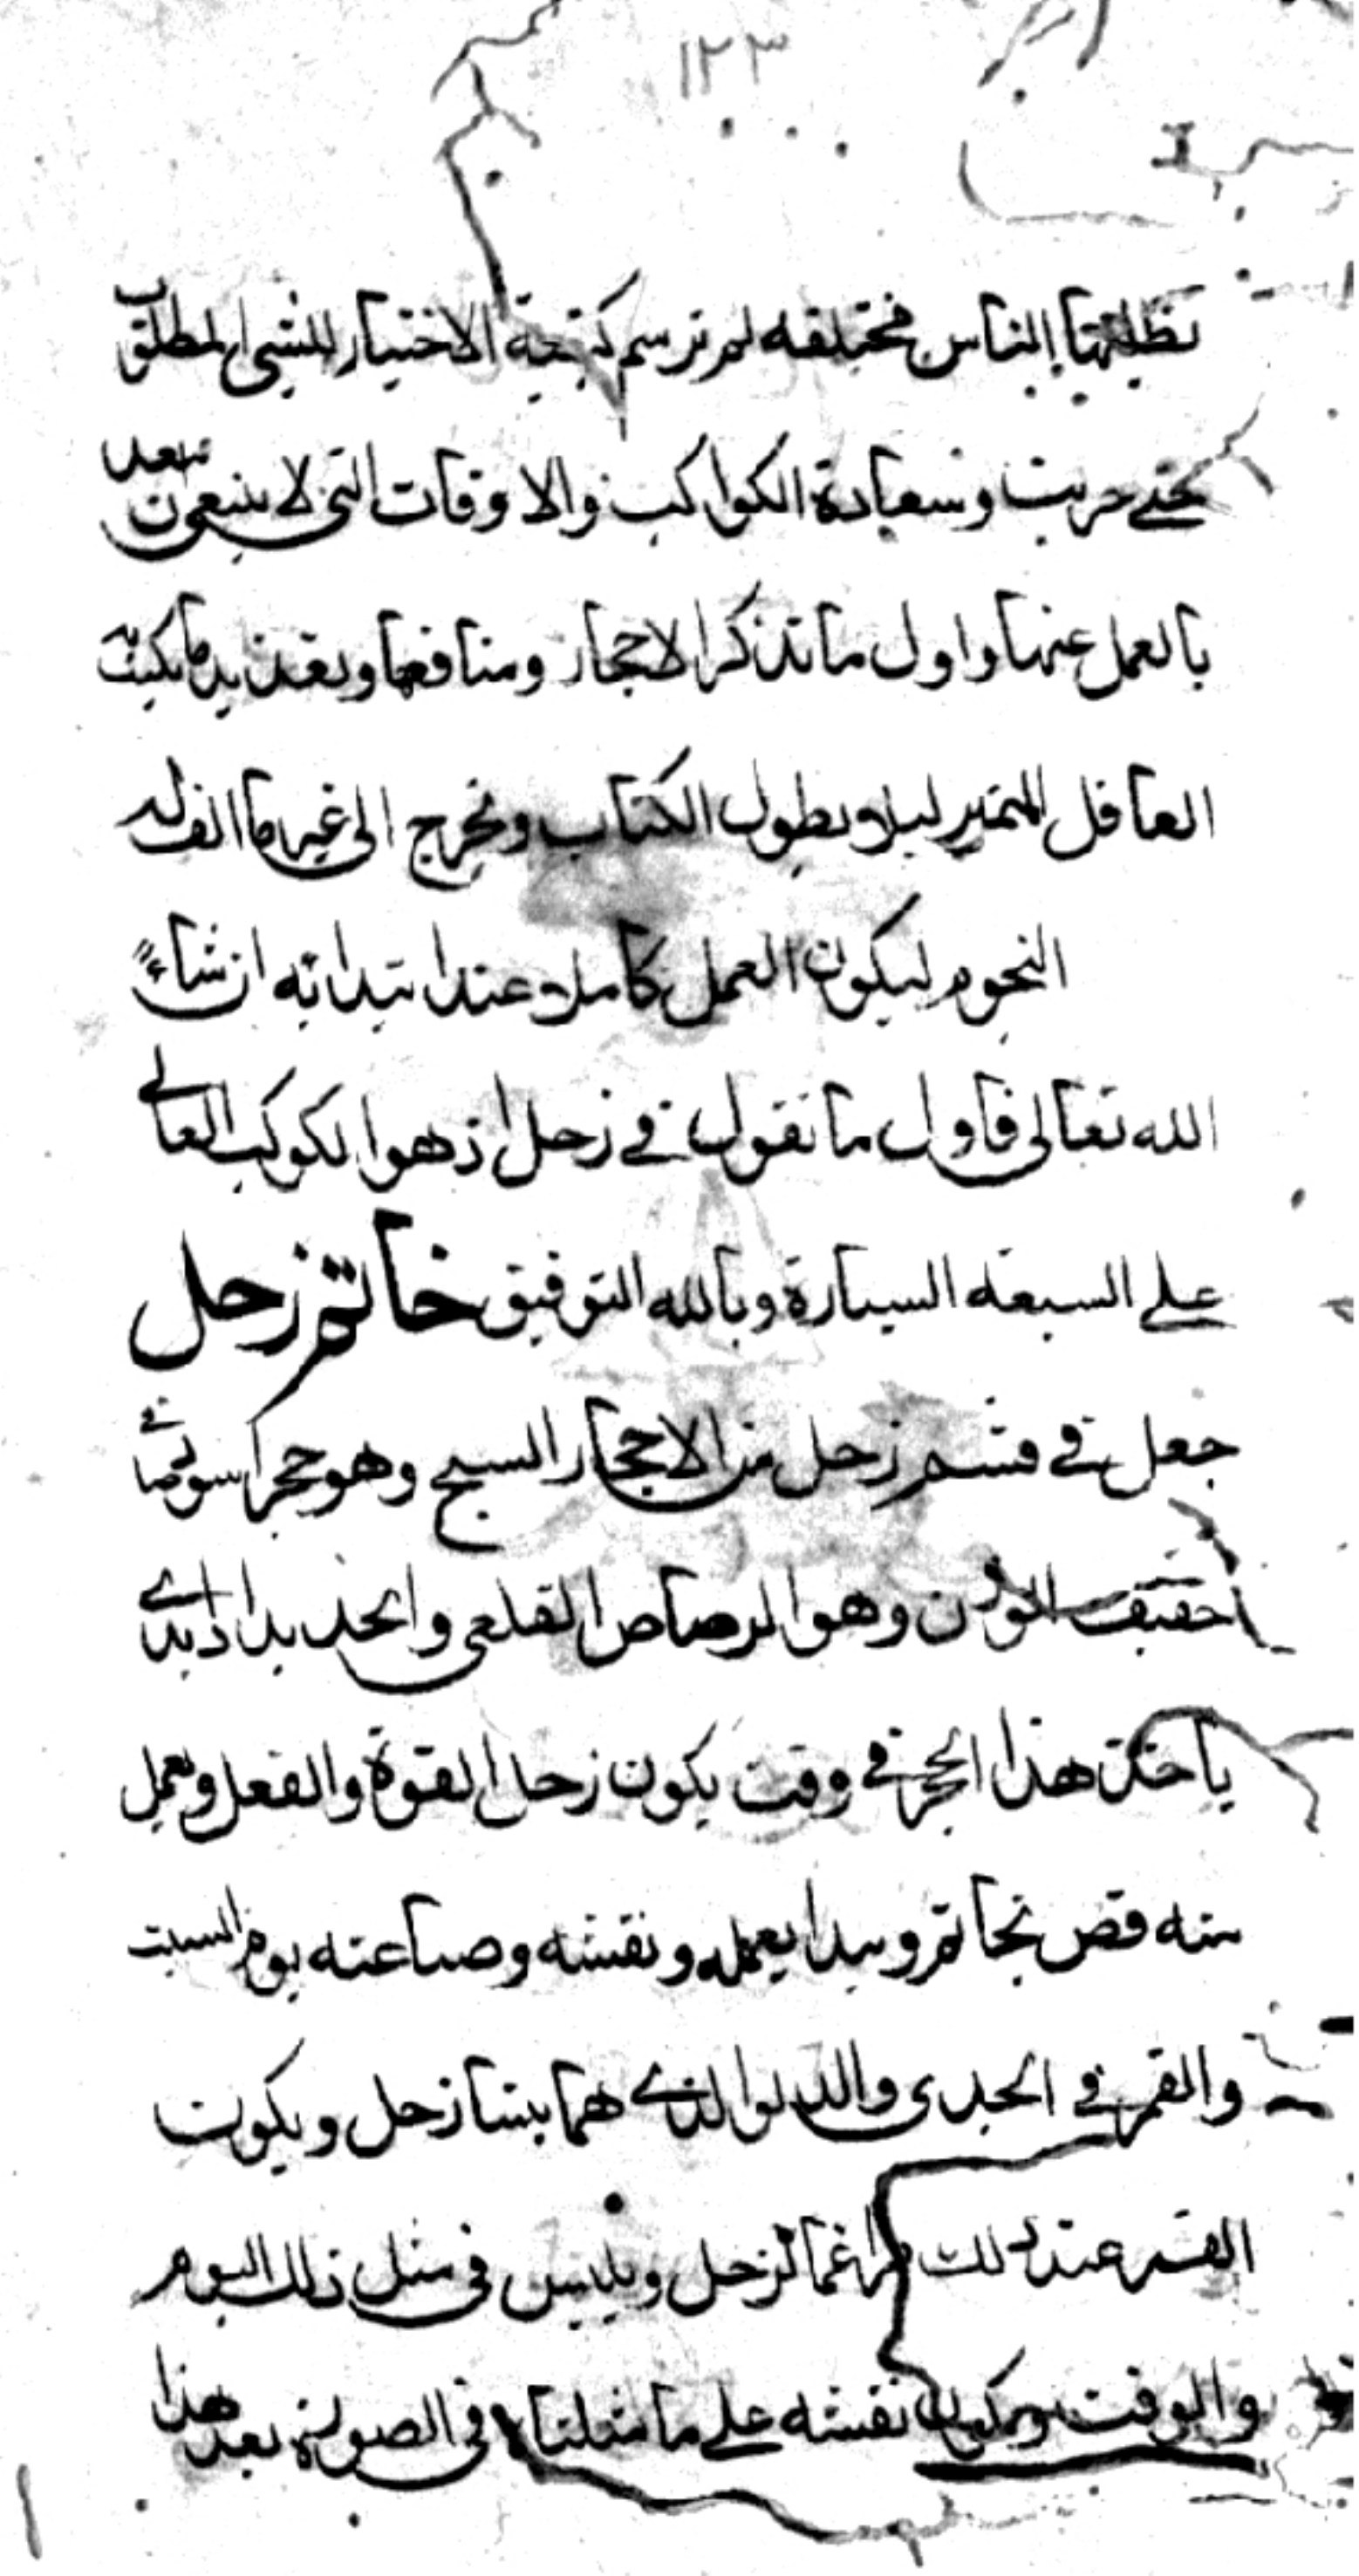 ١٢٣
الناس مختلفه لم نرسم كيفية الاختيار للشي المطلوب
وسعادة الكواكب والاوقات التي لا ينبغي
بالعمل عنها واول ما نذكر الاحجار ومنافعها
العاقل المتميز ليلا يطول الكتاب ونخرج الى غير ما الف له
النجوم ليكون العمل كاملا عند ابتدائه ان شاء
الله تعالى فاول ما نقول في زحل اذ هو الكوكب العالي
على السبعه السيارة وبالله التوفيق خاتم زحل
جعل في قسم زحل من الاحجار السبج وهو حجر اسود
خفيف الوزن وهو الرصاص القلعي والحديد اذا
ياخذ هذا الحجر في وقت يكون زحل القوة والفعل ويعمل
منه فص نخاتم ويبدا بعمله ونقشه وصناعته يوم السبت
والقمر في الجدي والدلو الذي هما بيتا زحل ويكون
القمر عند ذلك لزحل ويلبس في مثل ذلك اليوم
والوقت ويكون نقشه على ما مثلنا في الصورة بعد هذا